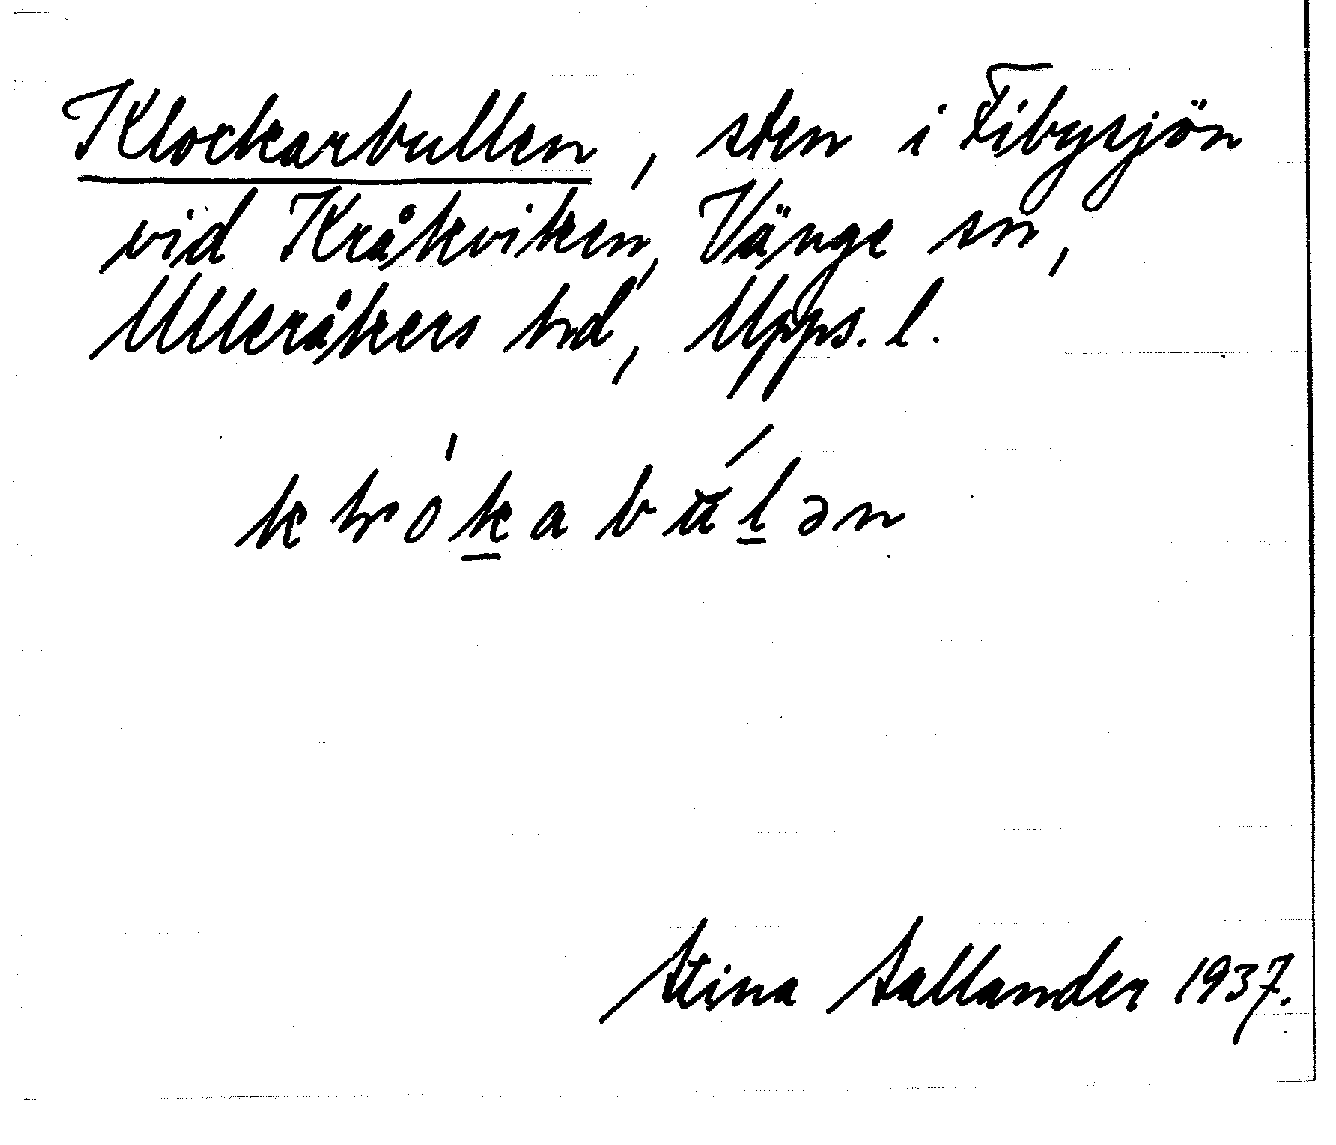 Klockarbullen, sten i Fibysjön
vid Kråkviken, Vänge sn,
Ulleråkers hd, Upps. l.
Stina Sallander 1937.